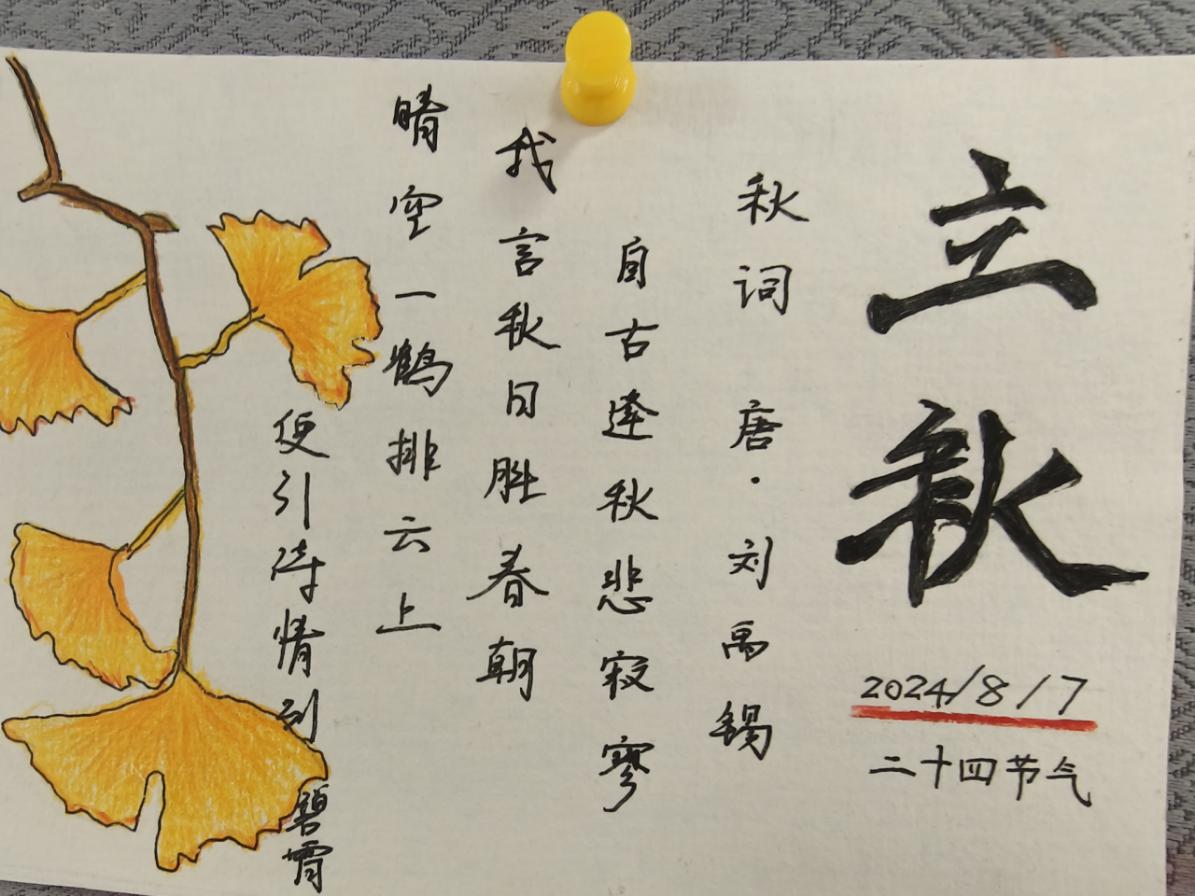 立秋
2024/8/7
二十四节气
秋词 唐·刘禹锡
自古逢秋悲寂寥
我言秋日胜春朝
晴空一鹤排云上
便引诗情到碧霄